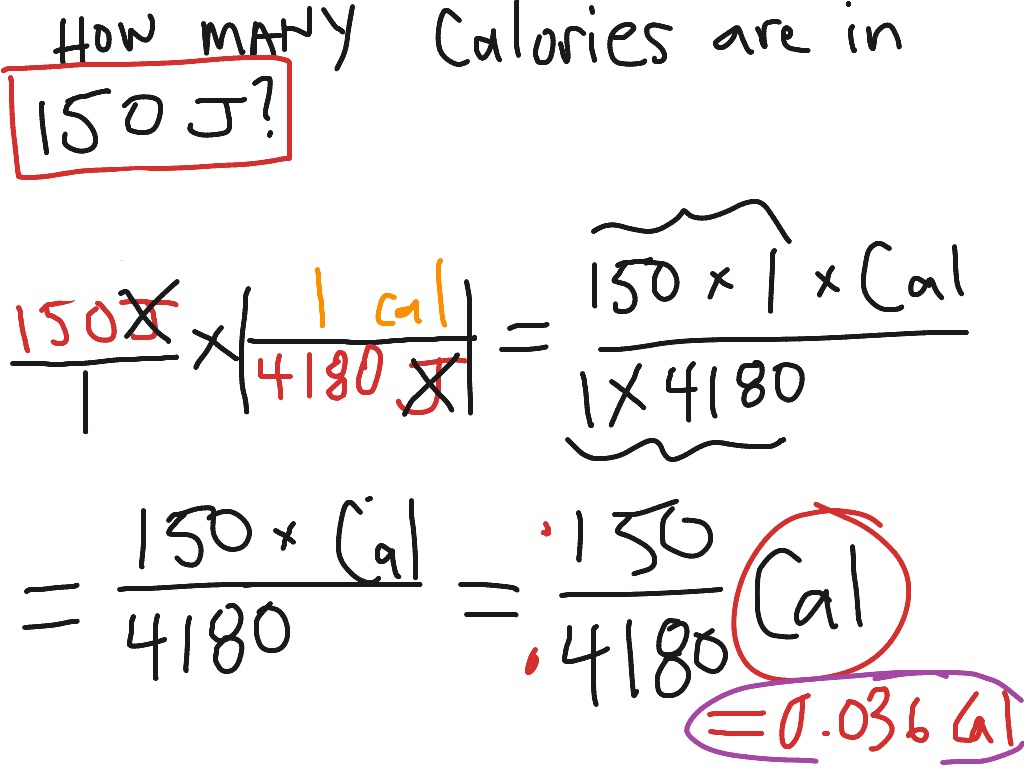 HOW MANY Calories are in
150 J?
150J/1 × (1 cal/4180 J) = 150 × 1 × Cal/1 × 4180
= 150 × Cal/4180 = 150/4180 Cal
= 0.036 Cal